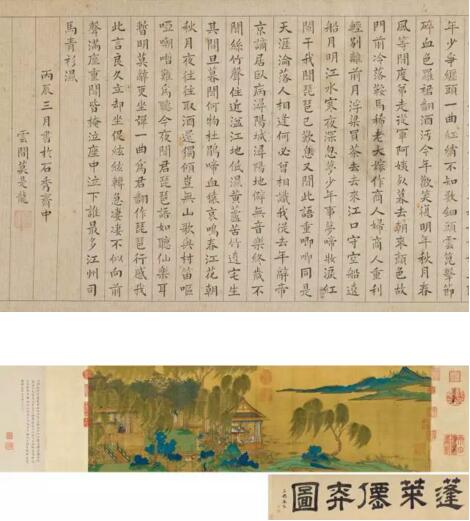 年少爭纏頭一曲紅綃不知數鈿頭雲篦擊節
碎血色羅裙翻酒污今年歡笑復明年秋月春
風等閒度弟走從軍阿姨死暮去朝來顏色故
門前冷落鞍馬稀老大嫁作商人婦商人重利
輕別離前月浮梁買茶去去來江口守空船遶
船月明江水寒夜深忽夢少年事夢啼妝淚紅
闌干我聞琵琶已歎息又聞此語重唧唧同是
天涯淪落人相逢何必曾相識我從去年辭帝
京謫居臥病潯陽城潯陽地僻無音樂終歲不
聞絲竹聲住近湓江地低濕黃蘆苦竹遶宅生
其間旦暮聞何物杜鵑啼血猿哀鳴春江花朝
秋月夜往往取酒還獨傾豈無山歌與村笛嘔
啞嘲哳難為聽今夜聞君琵琶語如聽仙樂耳
暫明莫辭更坐彈一曲為君翻作琵琶行感我
此言良久立却坐促絃絃轉急淒淒不似向前
聲滿座重聞皆掩泣座中泣下誰最多江州司
馬青衫濕
丙辰三月書於石秀齋中
雲間莫是龍
蓬萊僊弈圖